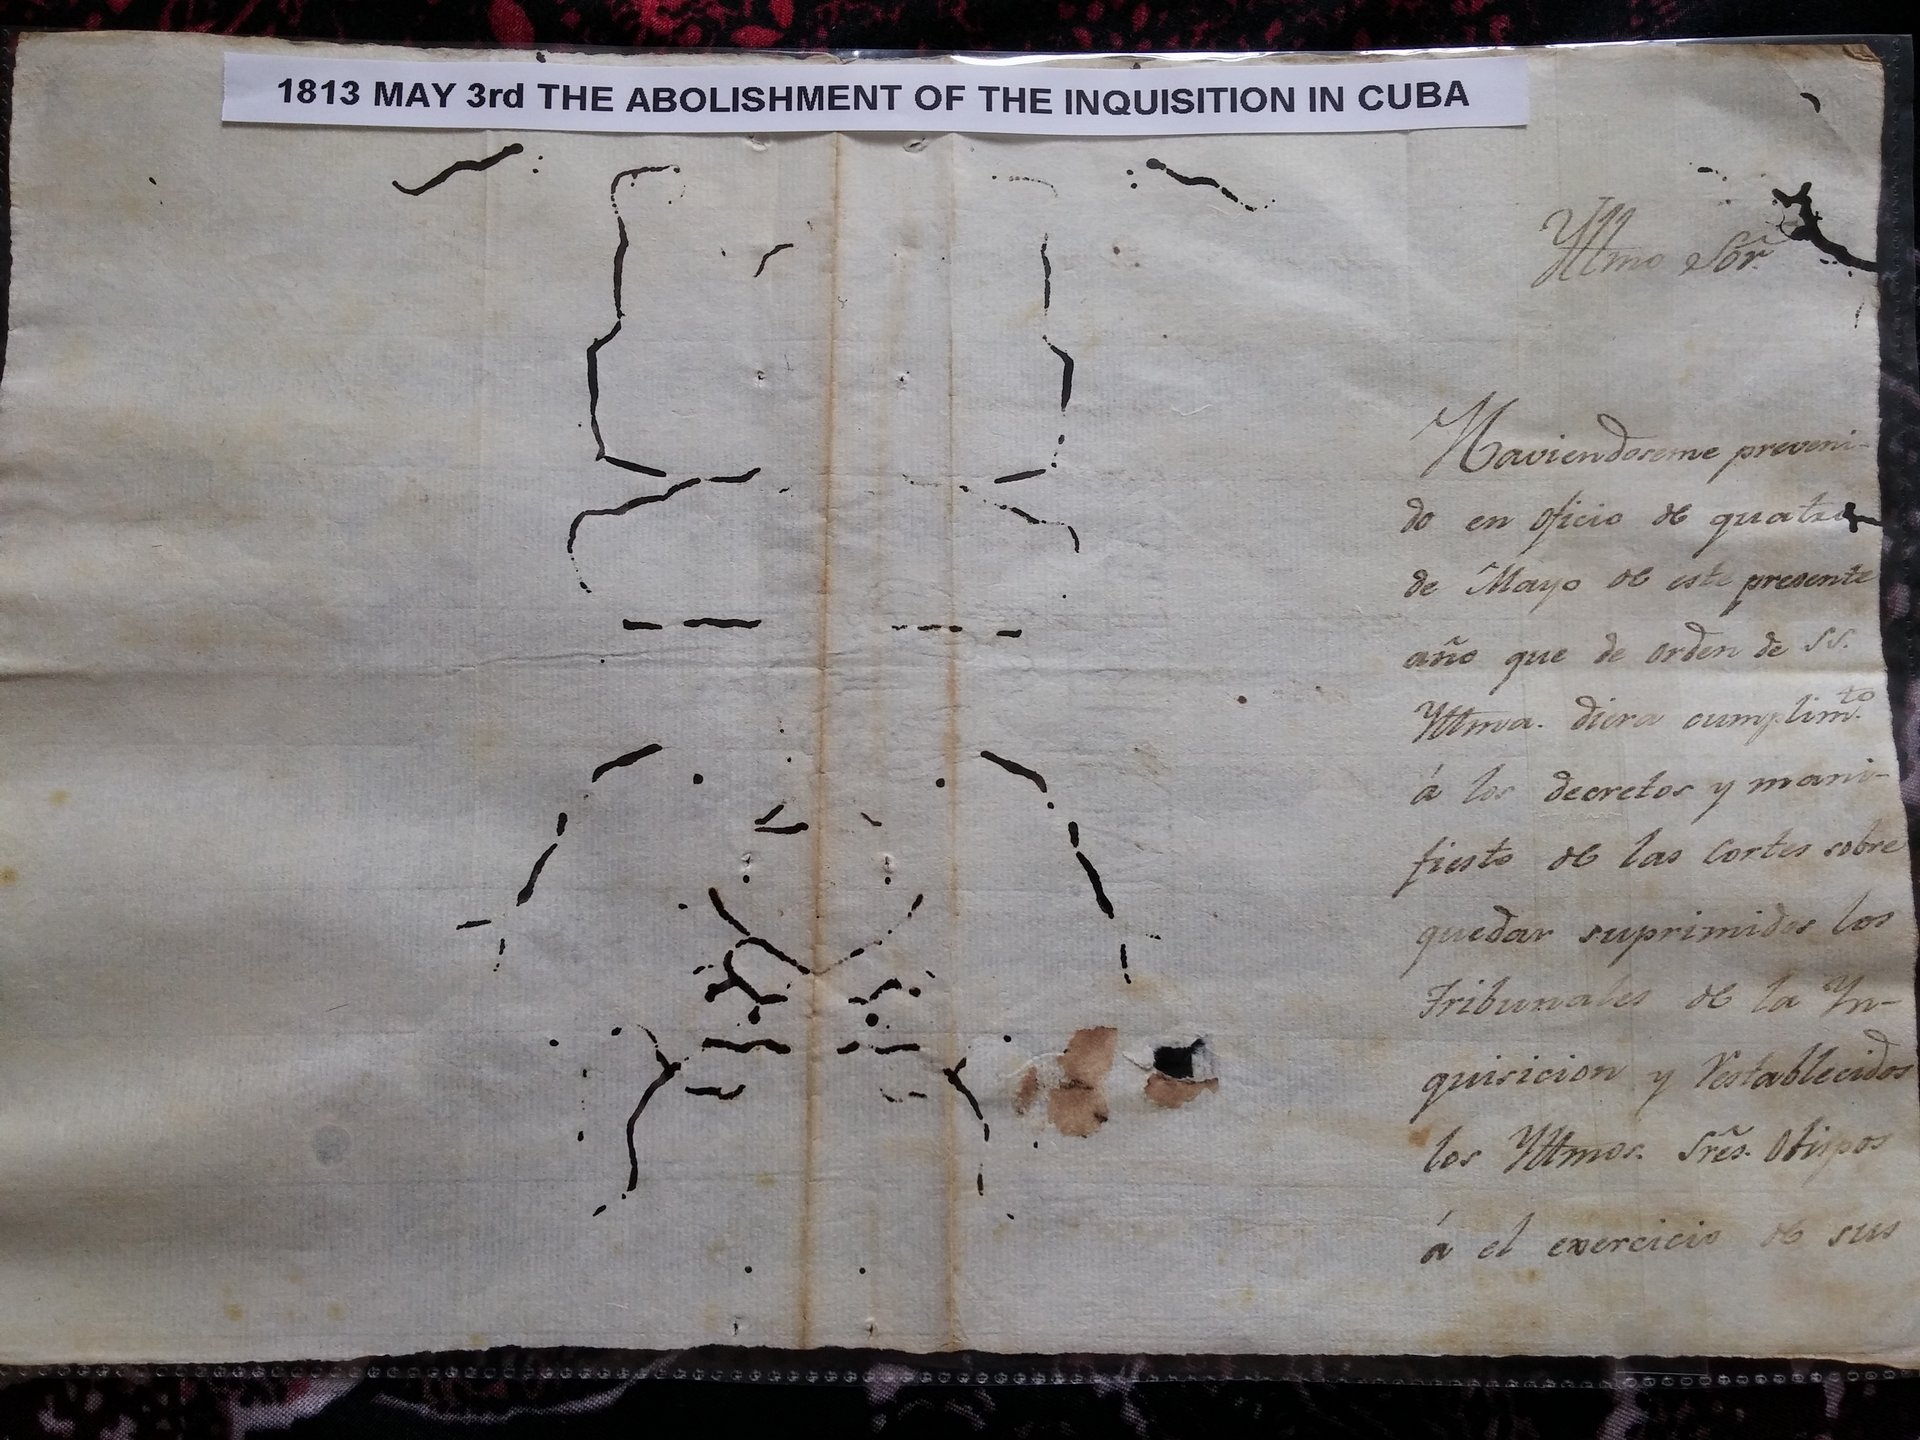 1813 MAY 3rd THE ABOLISHMENT OF THE INQUISITION IN CUBA
Yltmo Sõr
Haviendoseme preveni-
do en oficio de quatro
de Mayo de este presente
año que de orden de SS.
Yltma. diera cumplim.to
á los decretos y mani-
fiesto de las Cortes sobre
quedar suprimidos los
Tribunales de la Yn-
quisicion y restablecidos
los Yltmos. Srẽs. Obispos
á el exercicio de sus